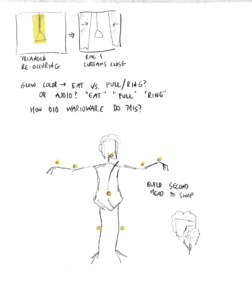 TRIANGLE
RE-OCCURING
RING &
CURTAINS CLOSE
GLOW COLOR → EAT VS. PULL/RING?
OR AVOID? "EAT" "PULL" "RING"
HOW DID WARIOWARE DO THIS?
BUILD SECOND
HEAD TO SWAP